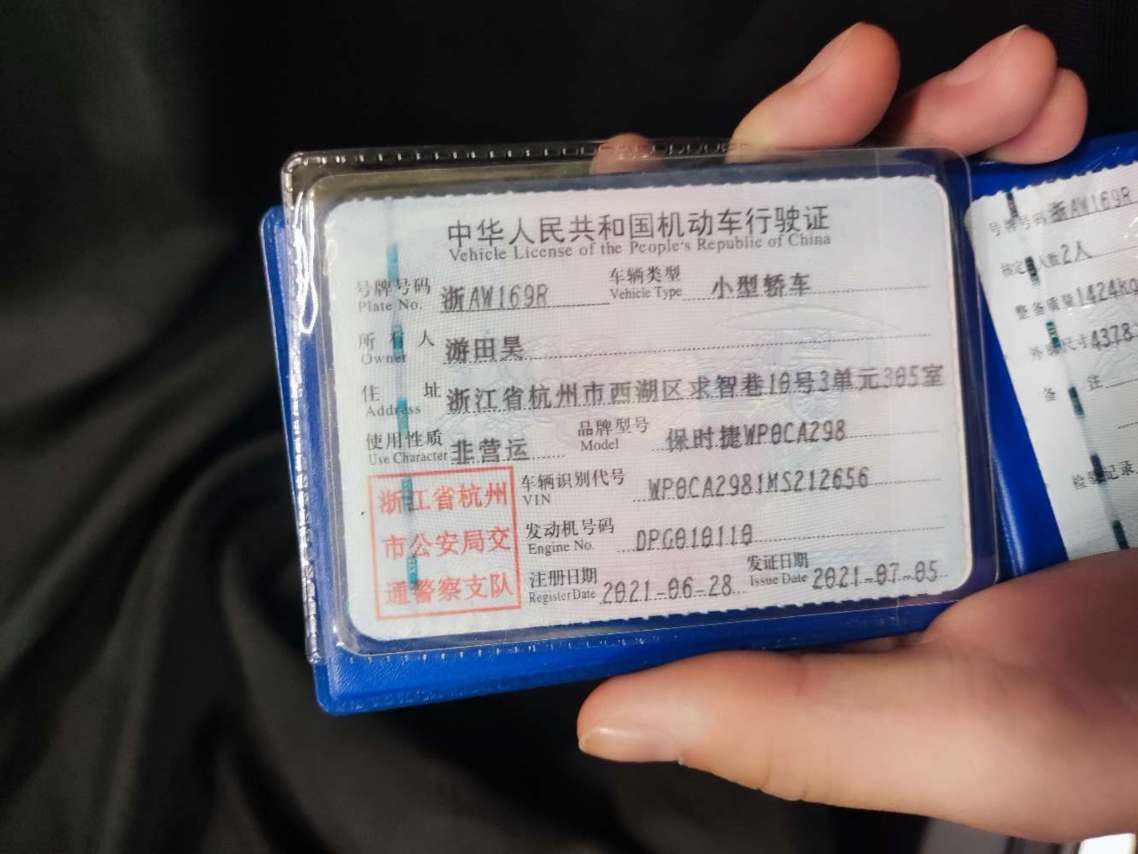 中华人民共和国机动车行驶证
Vehicle License of the People's Republic of China
号牌号码 浙AW169R 车辆类型 小型轿车
Plate No. Vehicle Type
所有人 游田昊
Owner
住址 浙江省杭州市西湖区求智巷10号3单元305室
Address
使用性质 非营运 品牌型号 保时捷WP0CA298
Use Character Model
浙江省杭州
市公安局交
通警察支队
车辆识别代号 WP0CA2981MS212656
VIN
发动机号码 DPG010110
Engine No.
注册日期 2021-06-28 发证日期 2021-07-05
Register Date Issue Date
号牌号码 浙AW169R
核定人数 2人
整备质量 1424kg
外廓尺寸 4378
备注
检验记录